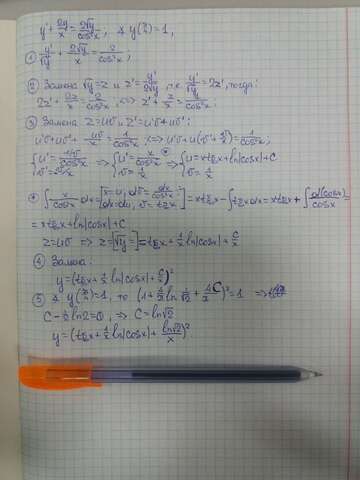 y' + 2y/x = 2√y/cos²x, y(π/4) = 1,
① y'/√y + 2√y/x = 2/cos²x;
② Замена √y = z и z' = y'/2√y, т.к. y'/√y = 2z', тогда:
2z' + 2z/x = 2/cos²x, <=> z' + z/x = 1/cos²x;
③ Замена z = uv и z' = u'v + uv':
u'v + uv' + uv/x = 1/cos²x, <=> u'v + u(v' + v/x) = 1/cos²x;
=> { u' = x/cos²x, v = 1/x => { u = xtgx + ln|cosx| + C, v = 1/x
∫ x/cos²x dx = [x = u, dv = dx/cos²x, dx = du, v = tgx] = xtgx - ∫tgx dx = xtgx + ∫ d(cosx)/cosx =
= xtgx + ln|cosx| + C
z = uv => z = [√y =] = tgx + 1/x ln|cosx| + C/x
④ Замена:
y = (tgx + 1/x ln|cosx| + C/x)²
C - 1/2 ln2 = 0, => C = ln√2
y = (tgx + 1/x ln|cosx| + ln√2/x)²